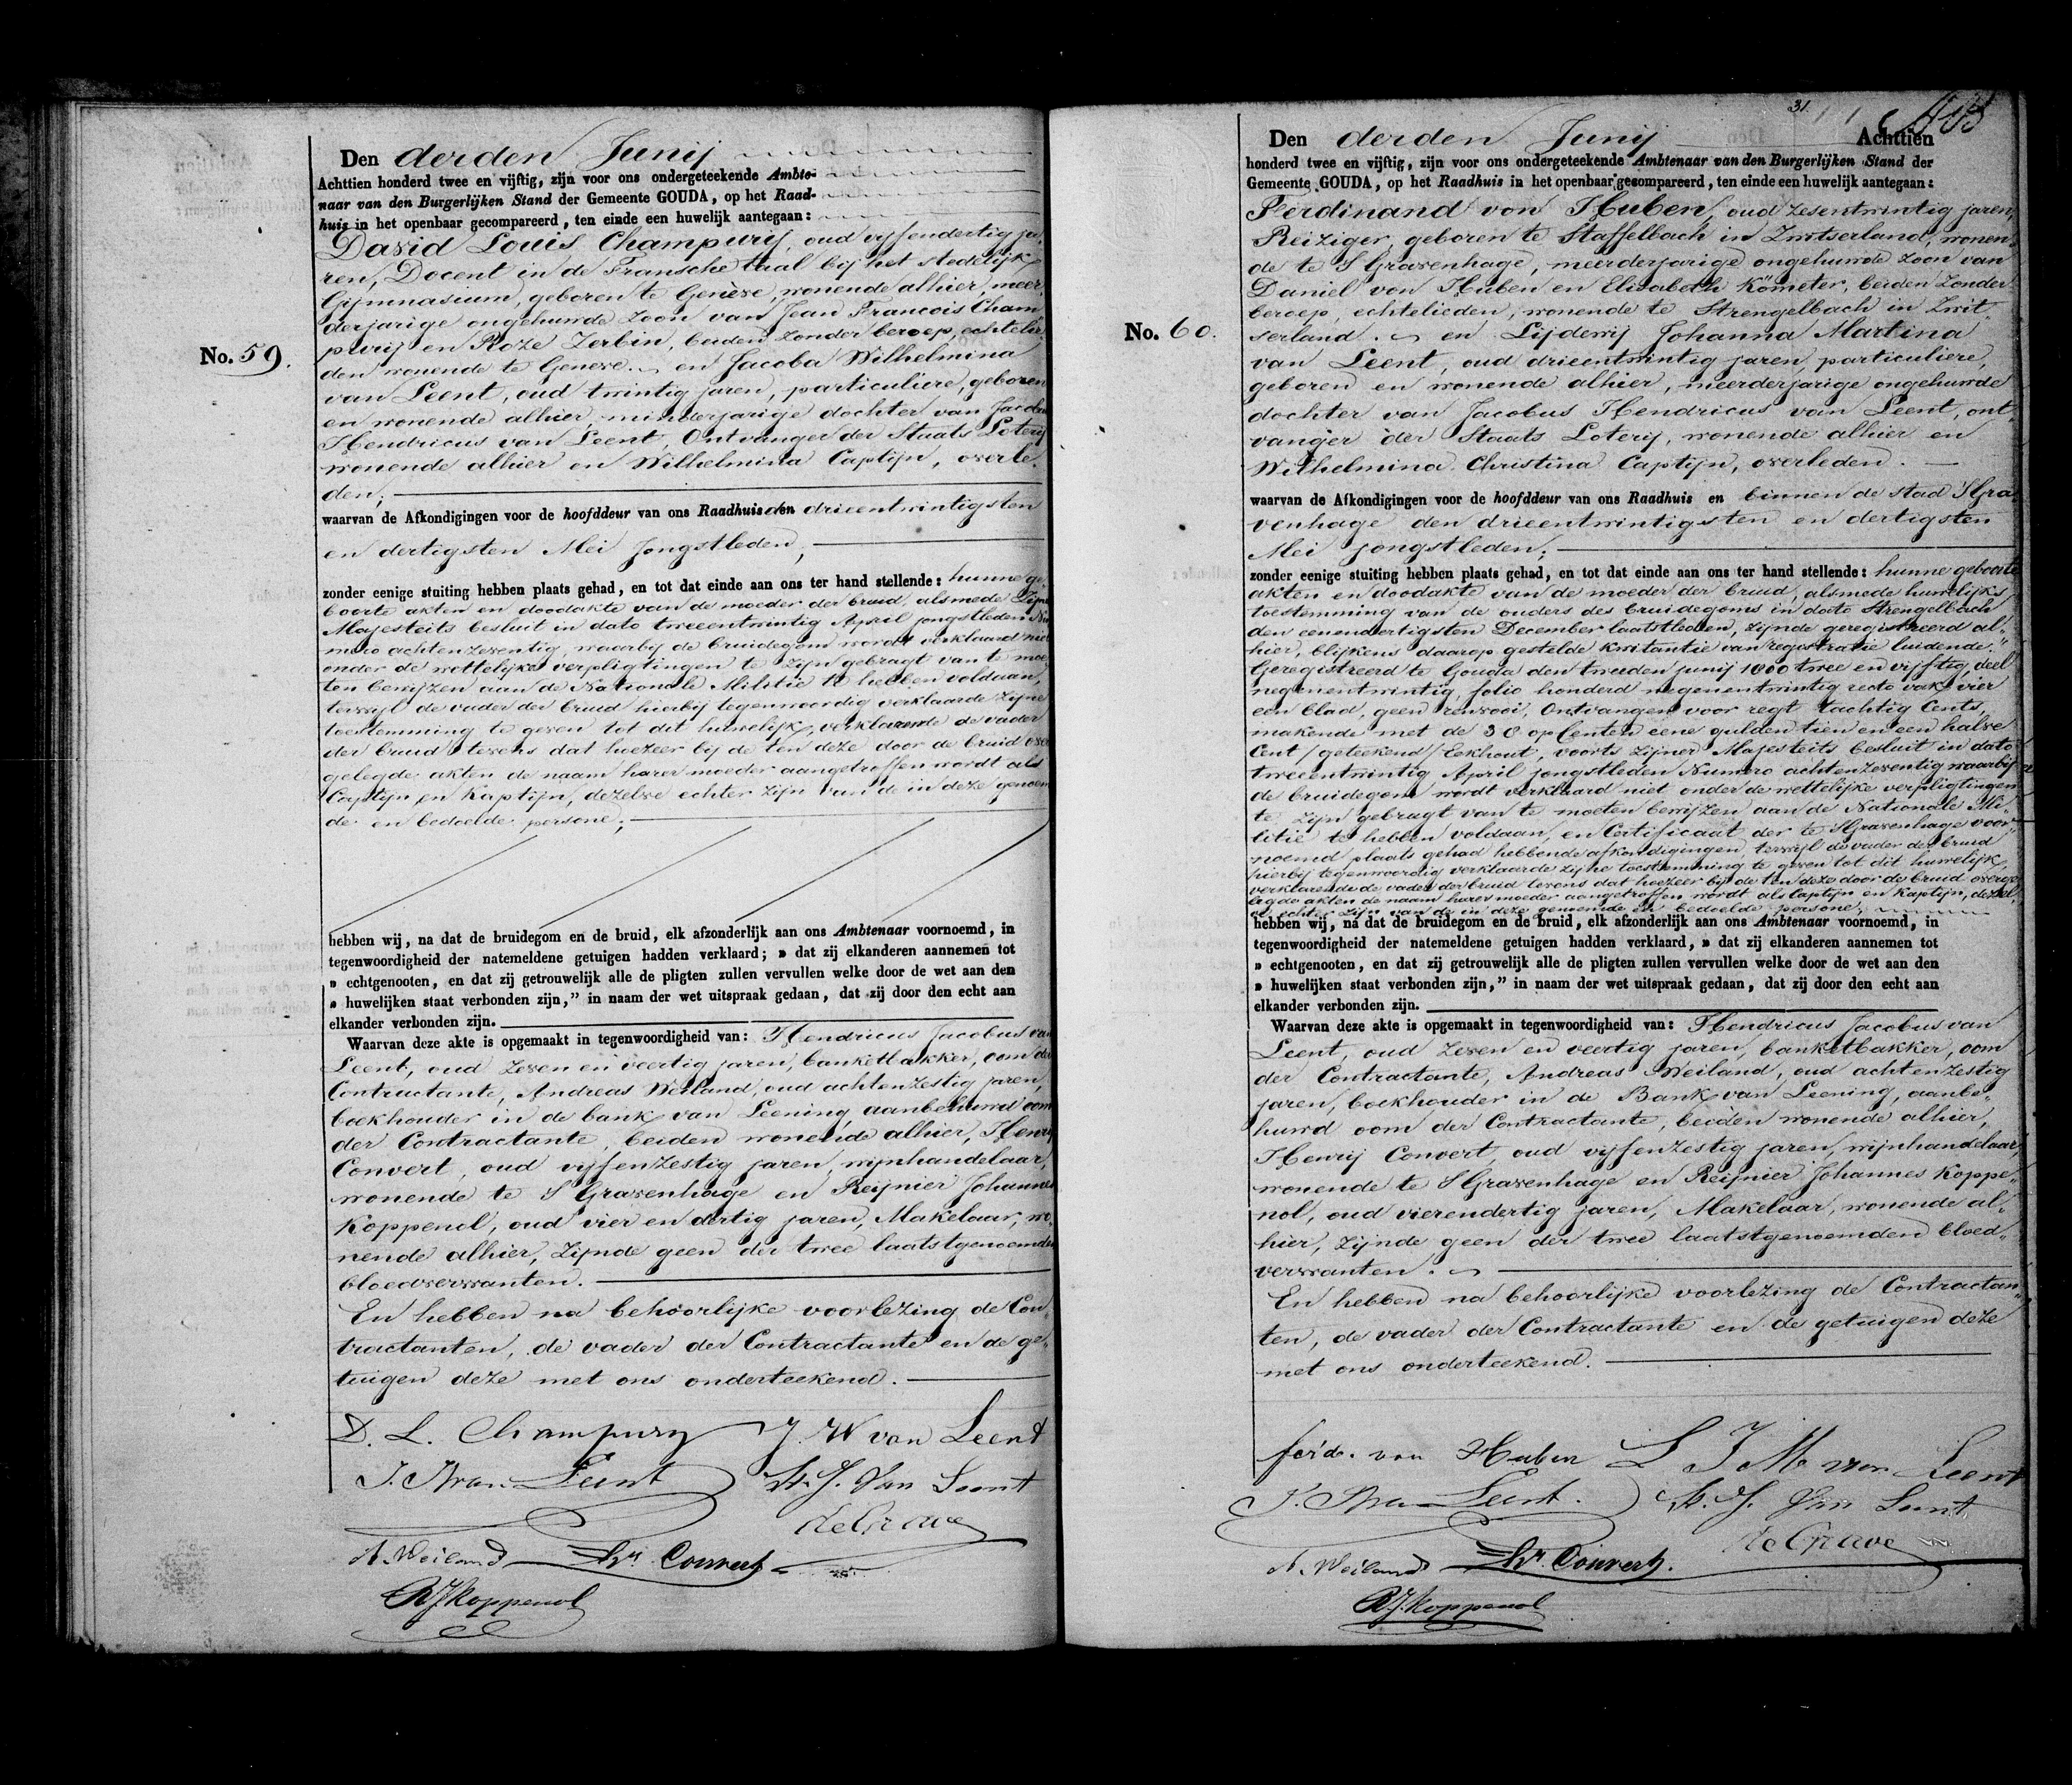 Den derden Junij
Achttien honderd twee en vijftig, zijn voor ons ondergeteekende Ambte-
naar van den Burgerlijken Stand der Gemeente GOUDA, op het Raad-
huis in het openbaar gecompareerd, ten einde een huwelijk aantegaan:
David Louis Champury, oud vijfendertig ja-
ren, Docent in de Fransche taal bij het stedelijk
Gijmnasium, geboren te Genève, wonende alhier, meer-
derjarige ongehuwde zoon van Jean Francois Cham-
purij en Roze Zerbin, beiden zonder beroep, echtelie-
den wonende te Geneve. en Jacoba Wilhelmina
No. 59.
van Leent, oud twintig jaren, particuliere, geboren
en wonende alhier, minderjarige dochter van Jacobus
Hendricus van Leent, Ontvanger der Staats Loterij
wonende alhier en Wilhelmina Captijn, overle-
den;
waarvan de Afkondigingen voor de hoofddeur van ons Raadhuis den drieentwintigsten
en dertigsten Mei jongstleden,
zonder eenige stuiting hebben plaats gehad, en tot dat einde aan ons ter hand stellende: hunne ge-
boorte akten en doodakte van de moeder der bruid, alsmede Zijne
Majesteits besluit in dato tweeentwintig April jongstleden Nu-
mero achtenzeventig, waarbij de bruidegom wordt verklaard niet
onder de wettelijke verpligtingen te zijn gebragt van te moe-
ten bewijzen aan de Nationale Militie te hebben voldaan,
terwijl de vader der bruid hierbij tegenwoordig verklaarde zijne
toestemming te geven tot dit huwelijk, verklarende de vader
der bruid tevens dat hoezeer bij de ten deze door de bruid over-
gelegde akten de naam harer moeder aangetroffen wordt als
Captijn en Kaptijn, dezelve echter zijn van de in deze genoem-
de en bedoelde persone;
hebben wij, na dat de bruidegom en de bruid, elk afzonderlijk aan ons Ambtenaar voornoemd, in
tegenwoordigheid der natemeldene getuigen hadden verklaard; » dat zij elkanderen aannemen tot
» echtgenooten, en dat zij getrouwelijk alle de pligten zullen vervullen welke door de wet aan den
» huwelijken staat verbonden zijn,” in naam der wet uitspraak gedaan, dat zij door den echt aan
elkander verbonden zijn.
Waarvan deze akte is opgemaakt in tegenwoordigheid van: Hendricus Jacobus van
Leent, oud zeven en veertig jaren, banketbakker, oom der
Contractante, Andreas Weiland, oud achtenzestig jaren,
boekhouder in de bank van Leening, aanbehuwd oom
der Contractante, beiden wonende alhier, Henry
Convert, oud vijfenzestig jaren, wijnhandelaar,
wonende te S Gravenhage en Reijnier Johannes
Koppenol, oud vier en dertig jaren, Makelaar, wo-
nende alhier, zijnde geen der twee laatstgenoemden
bloedverwanten.
En hebben na behoorlijke voorlezing de Con-
tractanten, de vader der Contractante en de ge-
tuigen deze met ons onderteekend.
D. L. Champury J. W van Leent
J. H van Leent H. J. Van Leent
de Grave
A. Weiland Hy. Convert
RJKoppenol
31
Den derden Junij Achttien
honderd twee en vijftig, zijn voor ons ondergeteekende Ambtenaar van den Burgerlijken Stand der
Gemeente GOUDA, op het Raadhuis in het openbaar gecompareerd, ten einde een huwelijk aantegaan:
Ferdinand von Huben, oud zesentwintig jaren,
Reiziger, geboren te Staffelbach in Zwitserland, wonen-
de te S Gravenhage, meerderjarige ongehuwde zoon van
Daniel von Huben en Elisabeth Kömeter, beiden zonder
beroep, echtelieden, wonende te Strengelbach in Zwit-
No. 60.
serland. en Lijdewij Johanna Martina
van Leent, oud drieentwintig jaren, particuliere,
geboren en wonende alhier, meerderjarige ongehuwde
dochter van Jacobus Hendricus van Leent, ont-
vanger der Staats Loterij, wonende alhier en
Wilhelmina Christina Captijn, overleden.
waarvan de Afkondigingen voor de hoofddeur van ons Raadhuis en binnen de stad SGra-
venhage den drieentwintigsten en dertigsten
Mei jongstleden;
zonder eenige stuiting hebben plaats gehad, en tot dat einde aan ons ter hand stellende: hunne geboorte
akten en doodakte van de moeder der bruid, alsmede huwelijks
toestemming van de ouders des bruidegoms in dato Strengelbach
den eenendertigsten December laatstleden, zijnde geregistreerd al-
hier, blijkens daarop gestelde kwitantie van registratie luidende:
Geregistreerd te Gouda den tweeden junij 1800 twee en vijftig, deel
negenentwintig, folio honderd negenentwintig recto vak vier
een blad, geen renvooi, Ontvangen voor regt tachtig Cents,
makende met de 38 opCenten eene gulden tien en een halve
Cent /geteekend/ Eekhout, voorts zijner Majesteits besluit in dato
tweeentwintig April jongstleden Numero achtenzeventig waarbij
de bruidegom wordt verklaard niet onder de wettelijke verpligtingen
te zijn gebragt van te moeten bewijzen aan de Nationale Mi-
litie te hebben voldaan, en Certificaat der te SGravenhage voor-
noemd plaats gehad hebbende afkondigingen, terwijl de vader der bruid
hierbij tegenwoordig verklaarde zijne toestemming te geven tot dit huwelijk,
verklarende de vader der bruid tevens dat hoezeer bij de ten deze door de bruid overge-
legde akten de naam harer moeder aangetroffen wordt als Captijn en Kaptijn, dezel-
ve echter zijn van de in deze genoemde en bedoelde persone;
hebben wij, na dat de bruidegom en de bruid, elk afzonderlijk aan ons Ambtenaar voornoemd, in
tegenwoordigheid der natemeldene getuigen hadden verklaard, » dat zij elkanderen aannemen tot
» echtgenooten, en dat zij getrouwelijk alle de pligten zullen vervullen welke door de wet aan den
» huwelijken staat verbonden zijn,” in naam der wet uitspraak gedaan, dat zij door den echt aan
elkander verbonden zijn.
Waarvan deze akte is opgemaakt in tegenwoordigheid van: Hendricus Jacobus van
Leent, oud zeven en veertig jaren, banketbakker, oom
der Contractante, Andreas Weiland, oud achtenzestig
jaren, boekhouder in de Bank van Leening, aanbe-
huwd oom der Contractante, beiden wonende alhier,
Henrij Convert, oud vijfenzestig jaren, wijnhandelaar,
wonende te SGravenhage en Reijnier Johannes Koppe-
nol, oud vierendertig jaren, Makelaar, wonende al-
hier, zijnde geen der twee laatstgenoemden bloed-
verwanten.
En hebben na behoorlijke voorlezing de Contractan-
ten, de vader der Contractante en de getuigen deze
met ons onderteekend.
ferd. von Huben L J M van Leent
J. H van Leent. H. J. Van Leent
de Grave
A. Weiland Hy. Convert.
RJKoppenol